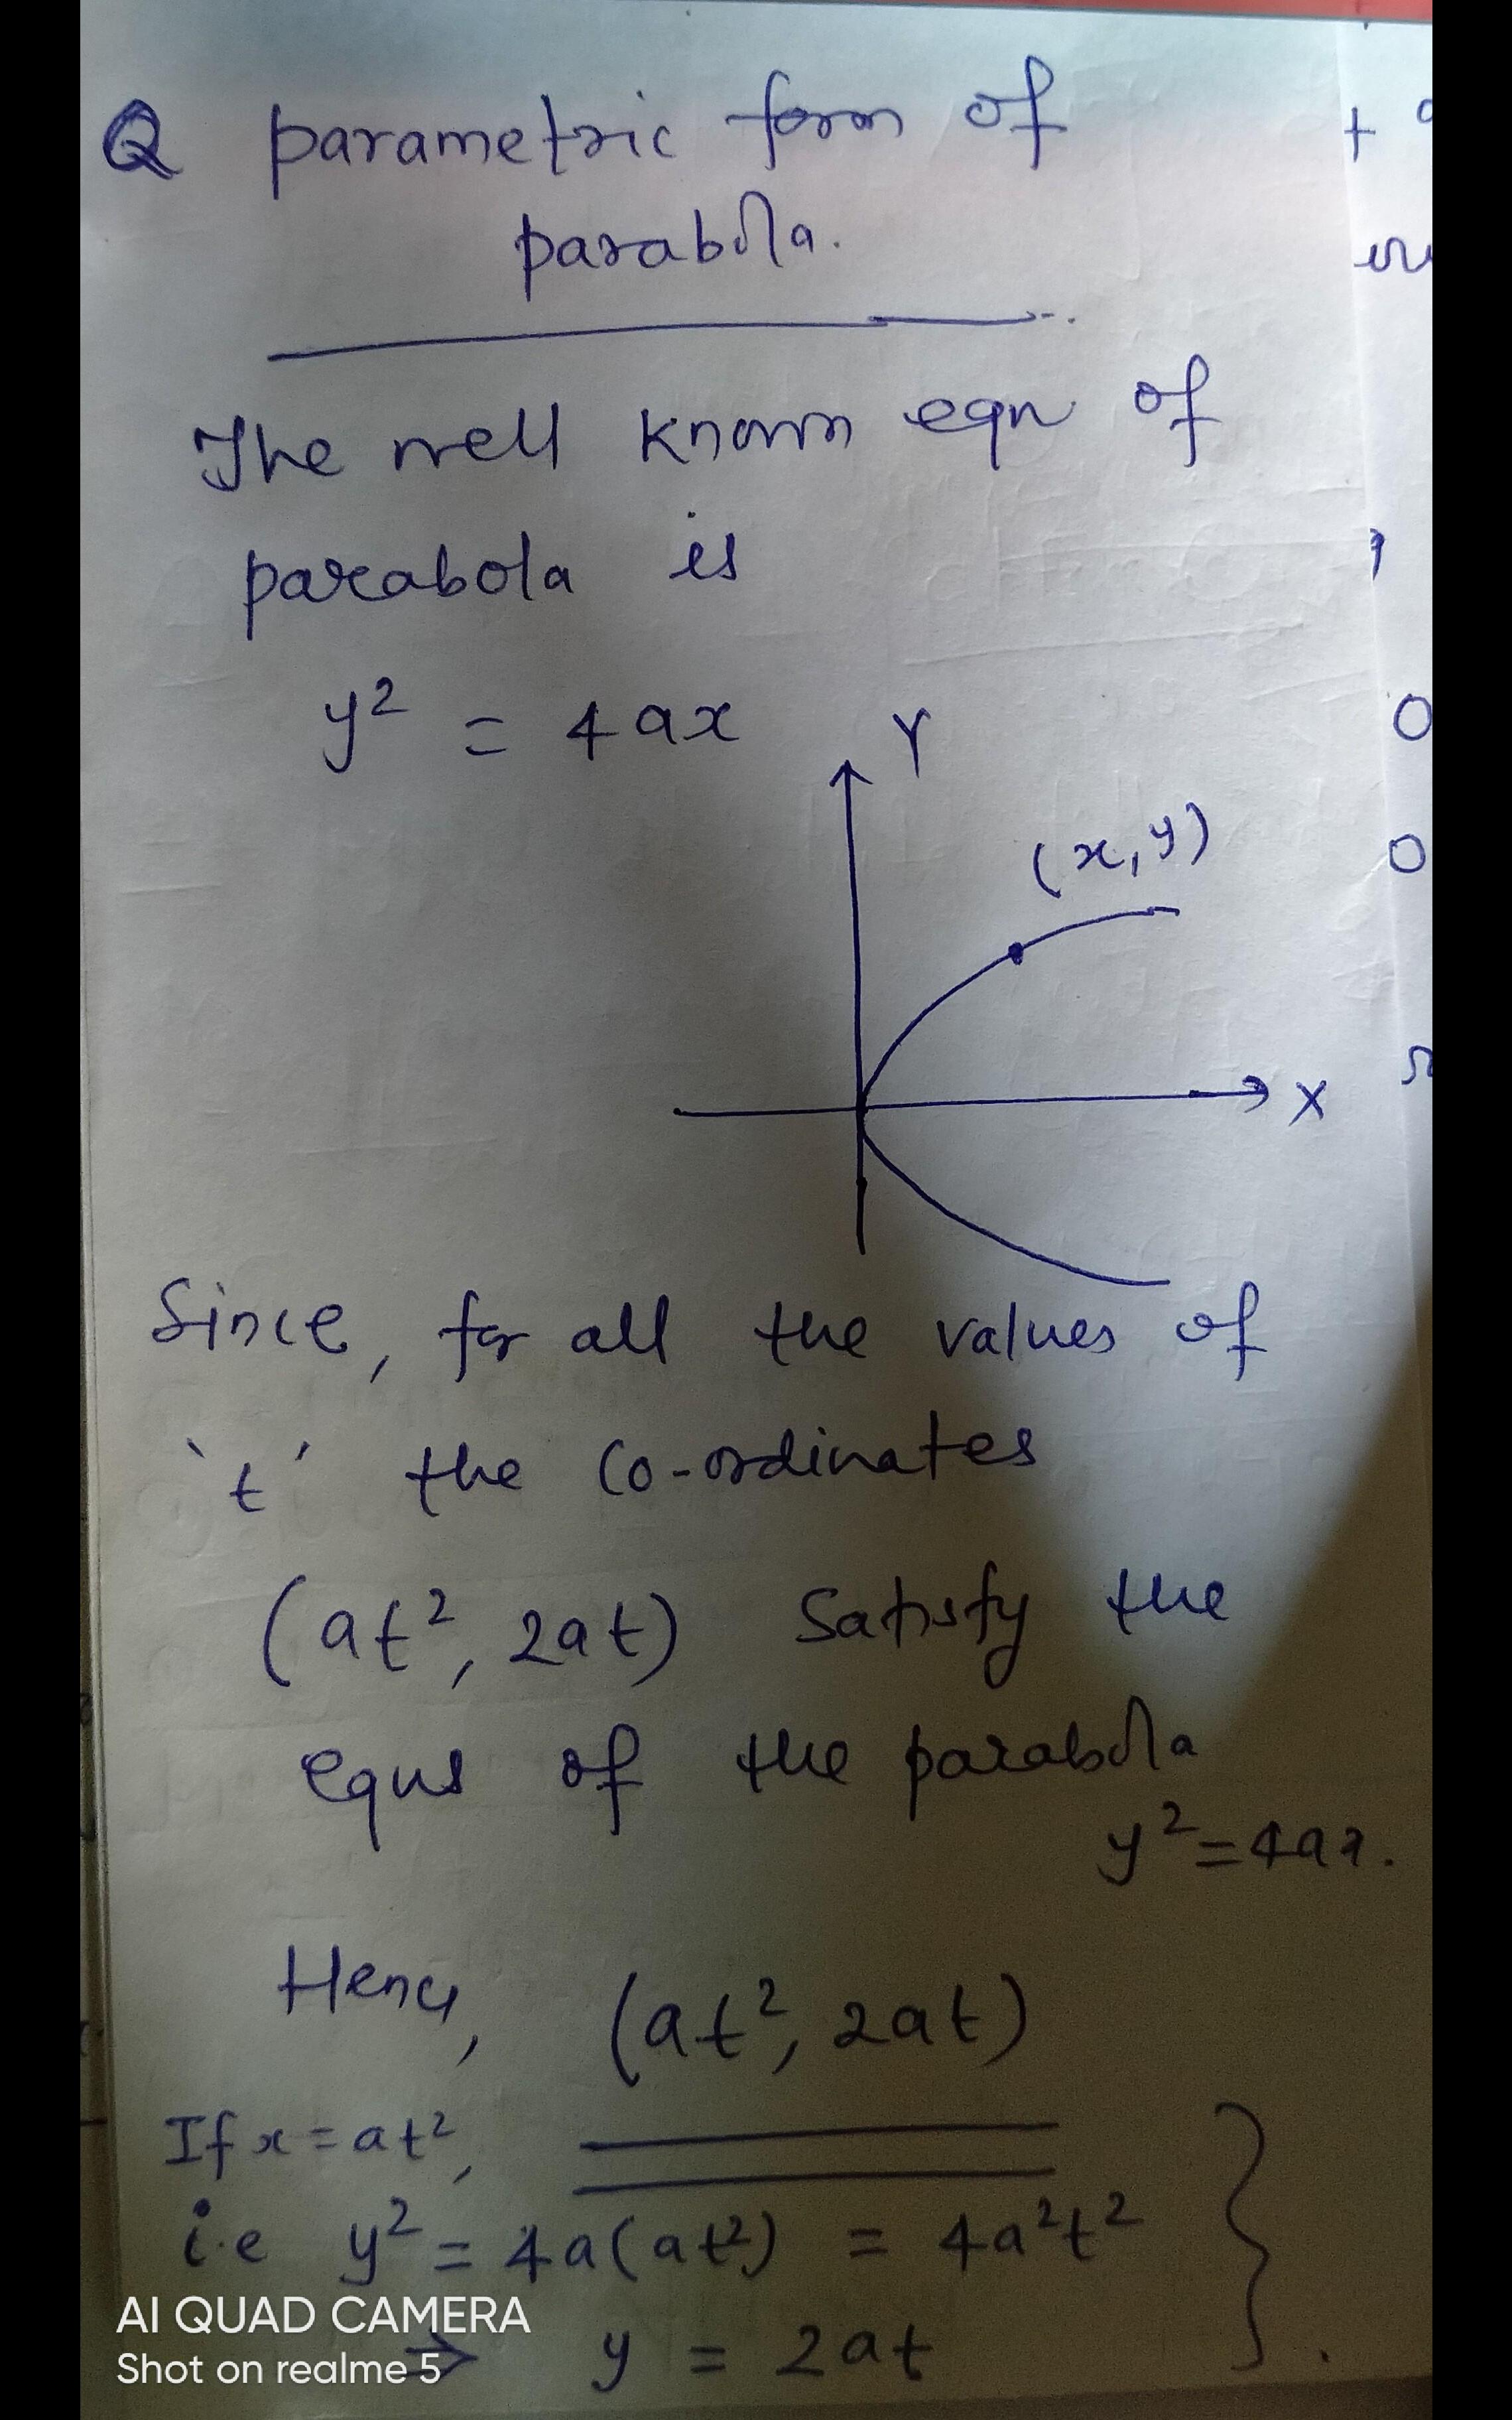 Q parametric form of
parabola.
The well known eqn of
parabola is
y² = 4ax
Y
(x, y)
X
Since, for all the values of
't' the Co-ordinates
(at², 2at) Satisfy the
eqns of the parabola
y² = 4ax.
Hence, (at², 2at)
If x = at²,
i.e y² = 4a(at²) = 4a²t²
⇒ y = 2at
AI QUAD CAMERA
Shot on realme 5